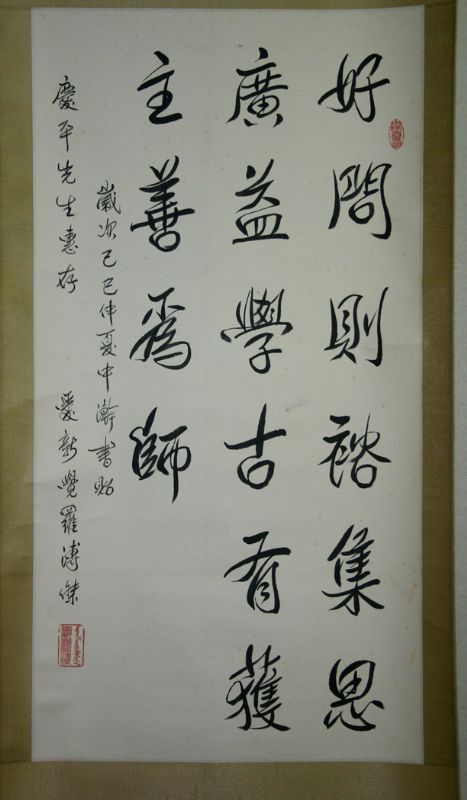 好問則裕集思
廣益學古有獲
主善爲師
歲次己巳仲夏中澣書貽
慶平先生惠存
愛新覺羅溥傑